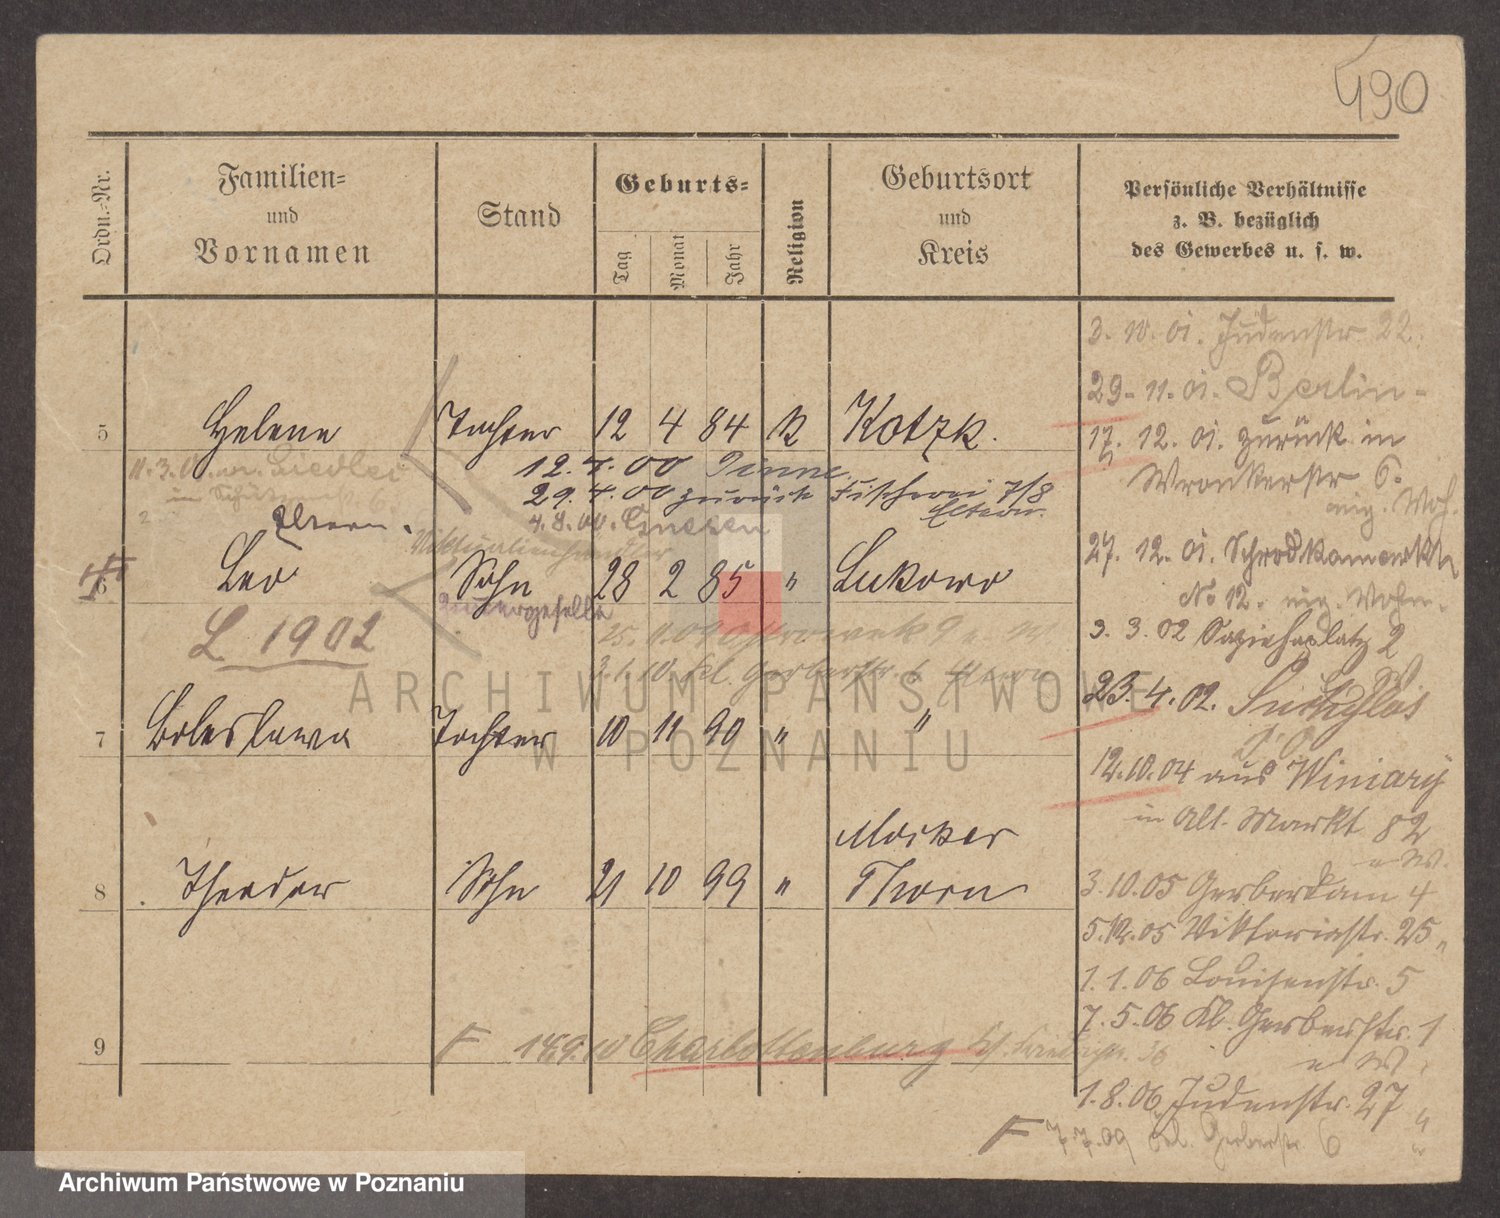 490
Ordn.-Nr.
Familien-
und
Vornamen
Stand
Geburts-
Tag
Monat
Jahr
Religion
Geburtsort
und
Kreis
Persönliche Verhältnisse
z. B. bezüglich
des Gewerbes u. s. w.
3. 10. 01. Judenstr 22.
29. 11. 01. Berlin
17. 12. 01. zurück in
Wronkerstr 6.
5 Helene Tochter 12 4 84 K Kotzk.
12. 4. 00 Pinne
29. 4. 00 zurück Fischerei 7/8
Eltern.
4. 8. 00. Gnesen
Eltern.
Viktualienhändler
27. 12. 01. Schrodkamarkt
No 12.
6 Leo Sohn 28 2 85 " Lukowo
L 1902
3. 3. 02 Sapiehaplatz 2
3. 1. 10. kl. Gerberstr 6 Eltern
23. 4. 02. Suchylas
7 Boleslawa Tochter 10 11 90 " "
12. 10. 04 aus Winiary
in Alt. Markt 82
8 Theodor Sohn 21 10 99 " Mocker
Thorn
3. 10. 05 Gerberdam 4
5. 12. 05 Viktoriastr. 25
1. 1. 06 Louisenstr. 5
7. 5. 06 Kl. Gerberstr. 1
9
F Charlottenburg
1. 8. 06 Judenstr. 27
F 7. 7. 09 Kl. Gerberstr 6
ARCHIWUM PAŃSTWOWE
W POZNANIU
Archiwum Państwowe w Poznaniu